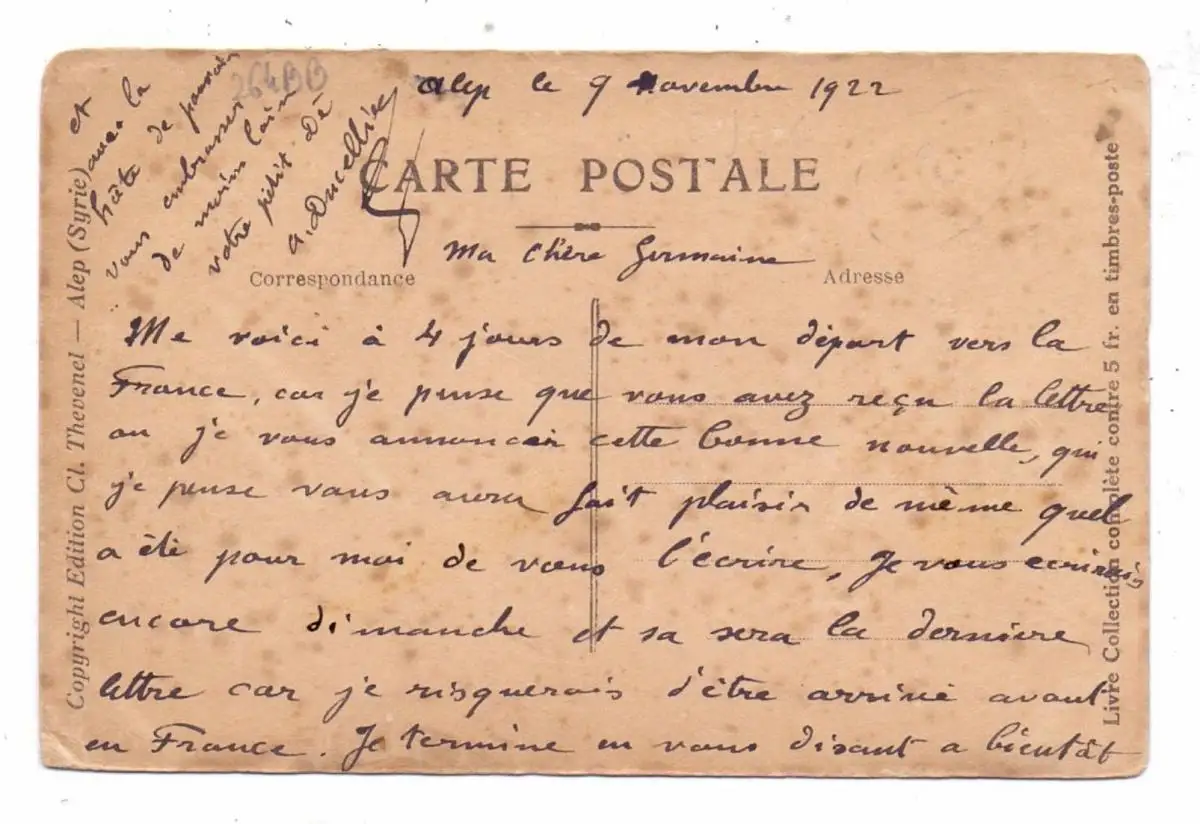 Alep le 9 Novembre 1922
CARTE POSTALE
Ma Chère Germaine
Correspondance
Adresse
Me voici à 4 jours de mon départ vers la
France, car je pense que vous avez reçu la lettre
ou je vous annoncer cette bonne nouvelle, qui
je pense vous aura fait plaisir de même quel
a été pour moi de vous l'écrire, Je vous ecrirais
encore dimanche et sa sera la derniere
lettre car je risquerais d'être arrivé avant
en France. Je termine en vous disant a bientôt
et
avec la
hâte de pouvoir
vous embrasser
de moins loin
votre petit Dé
A. Ducellier
264BB
Copyright Edition Cl. Thevenel — Alep (Syrie)
Livre Collection complète contre 5 fr. en timbres-poste